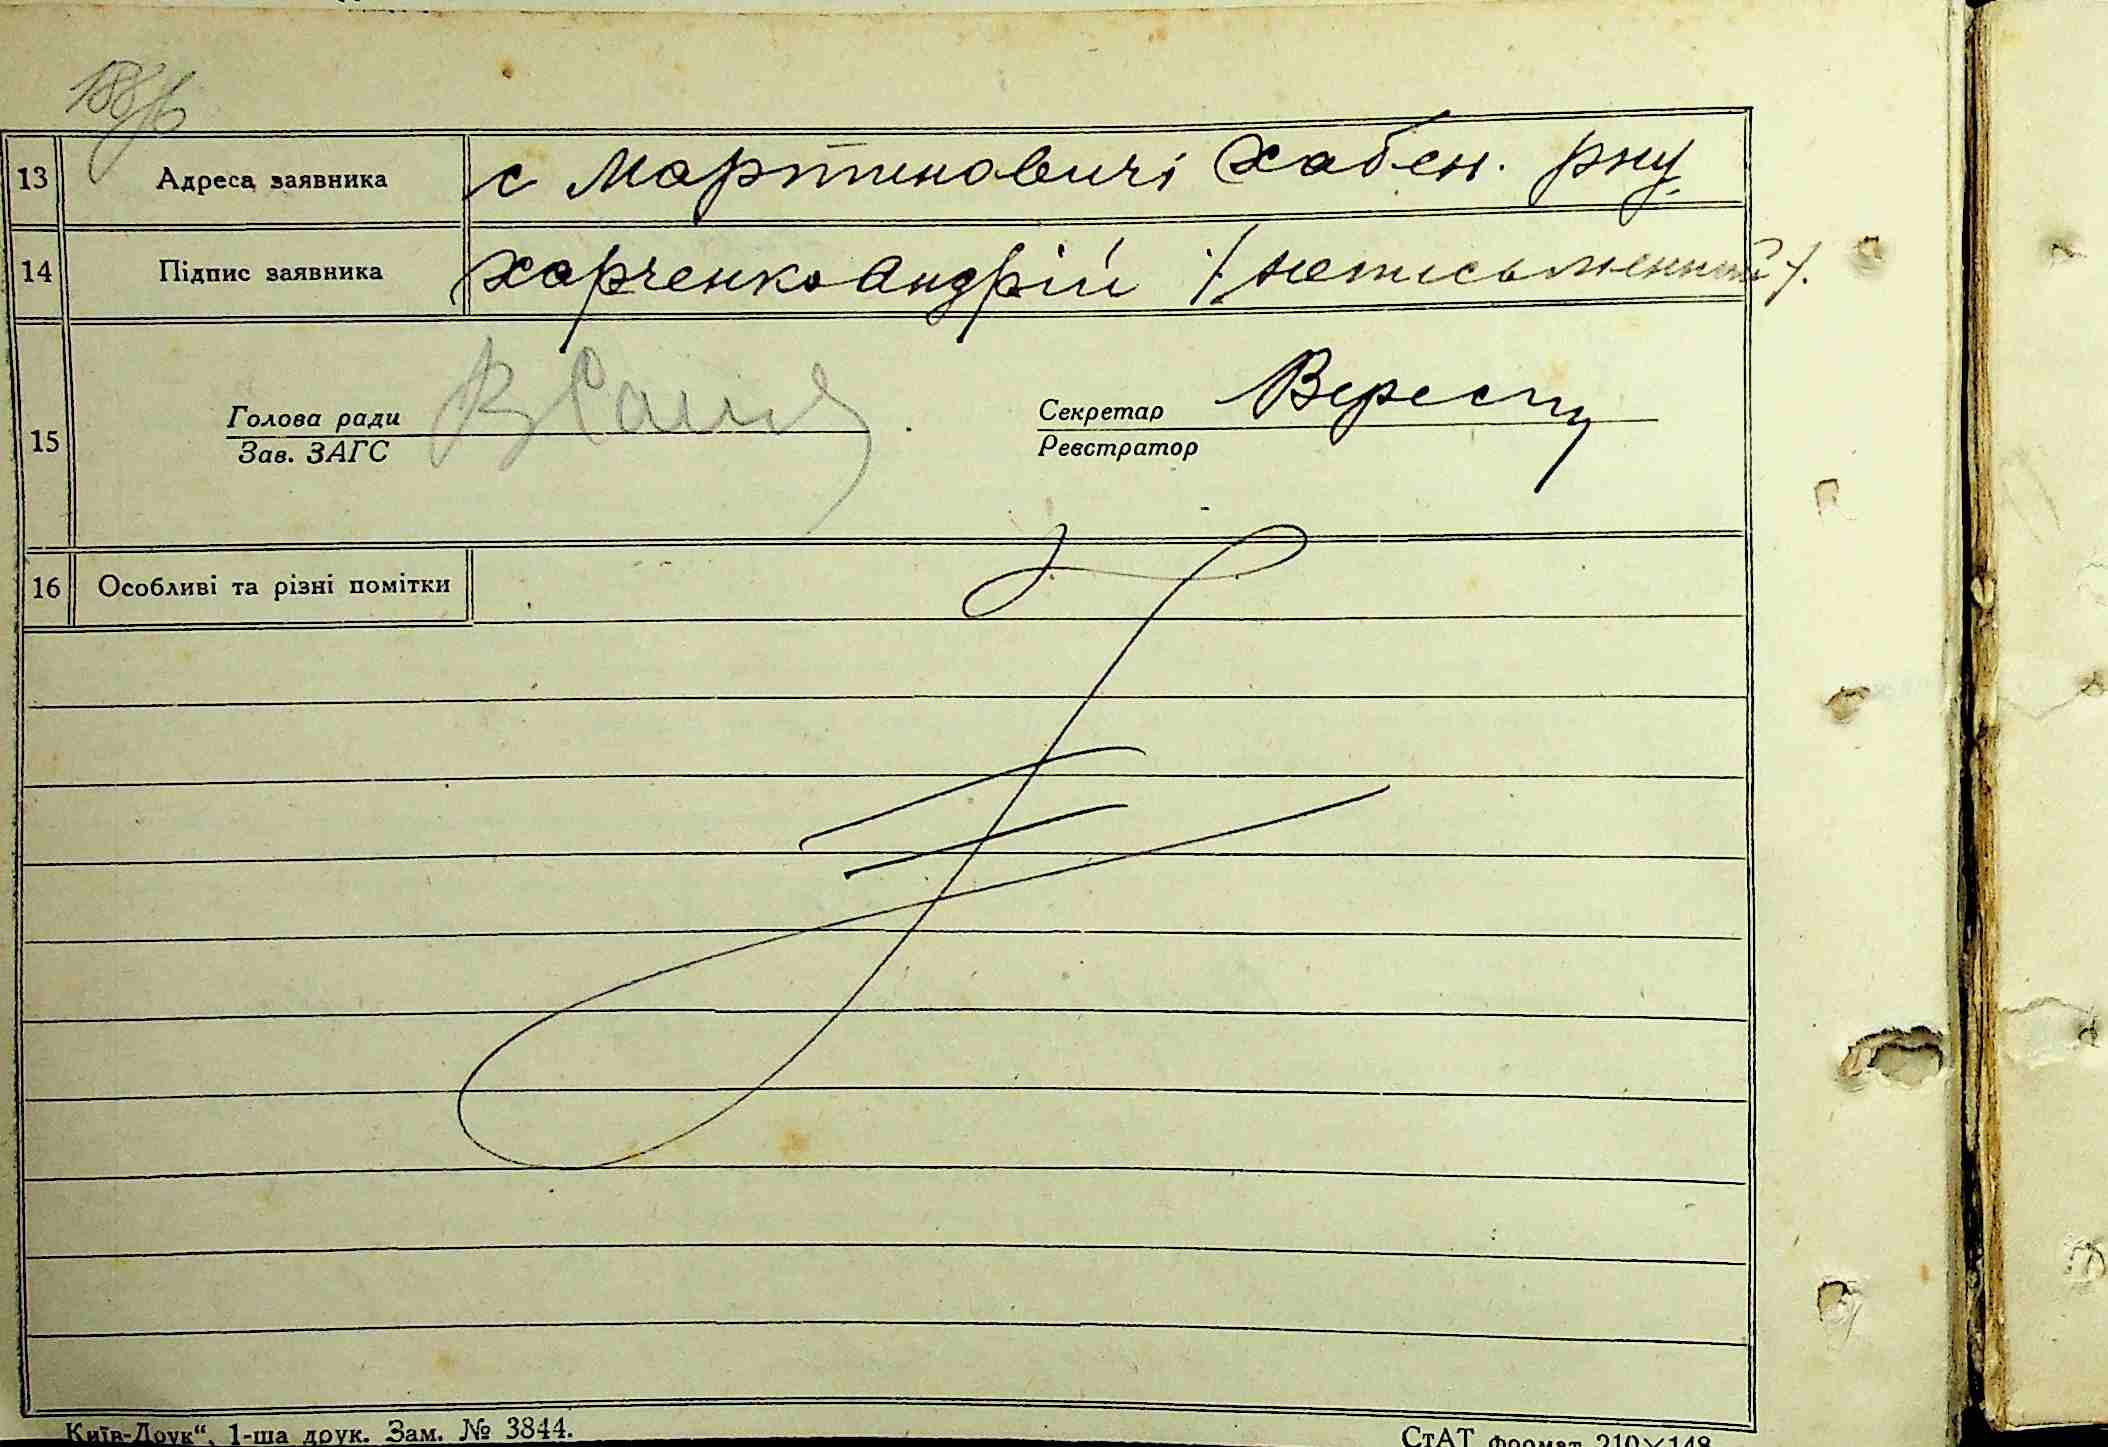 13 Адреса заявника с Мартиновичі Хабен. р-ну
14 Підпис заявника Харченко Андрій /неписьменний/.
15 Голова ради Секретар
Зав. ЗАГС Реєстратор
16 Особливі та різні помітки
Київ-Друк“, 1-ша друк. Зам. № 3844. СтАТ формат 210×148